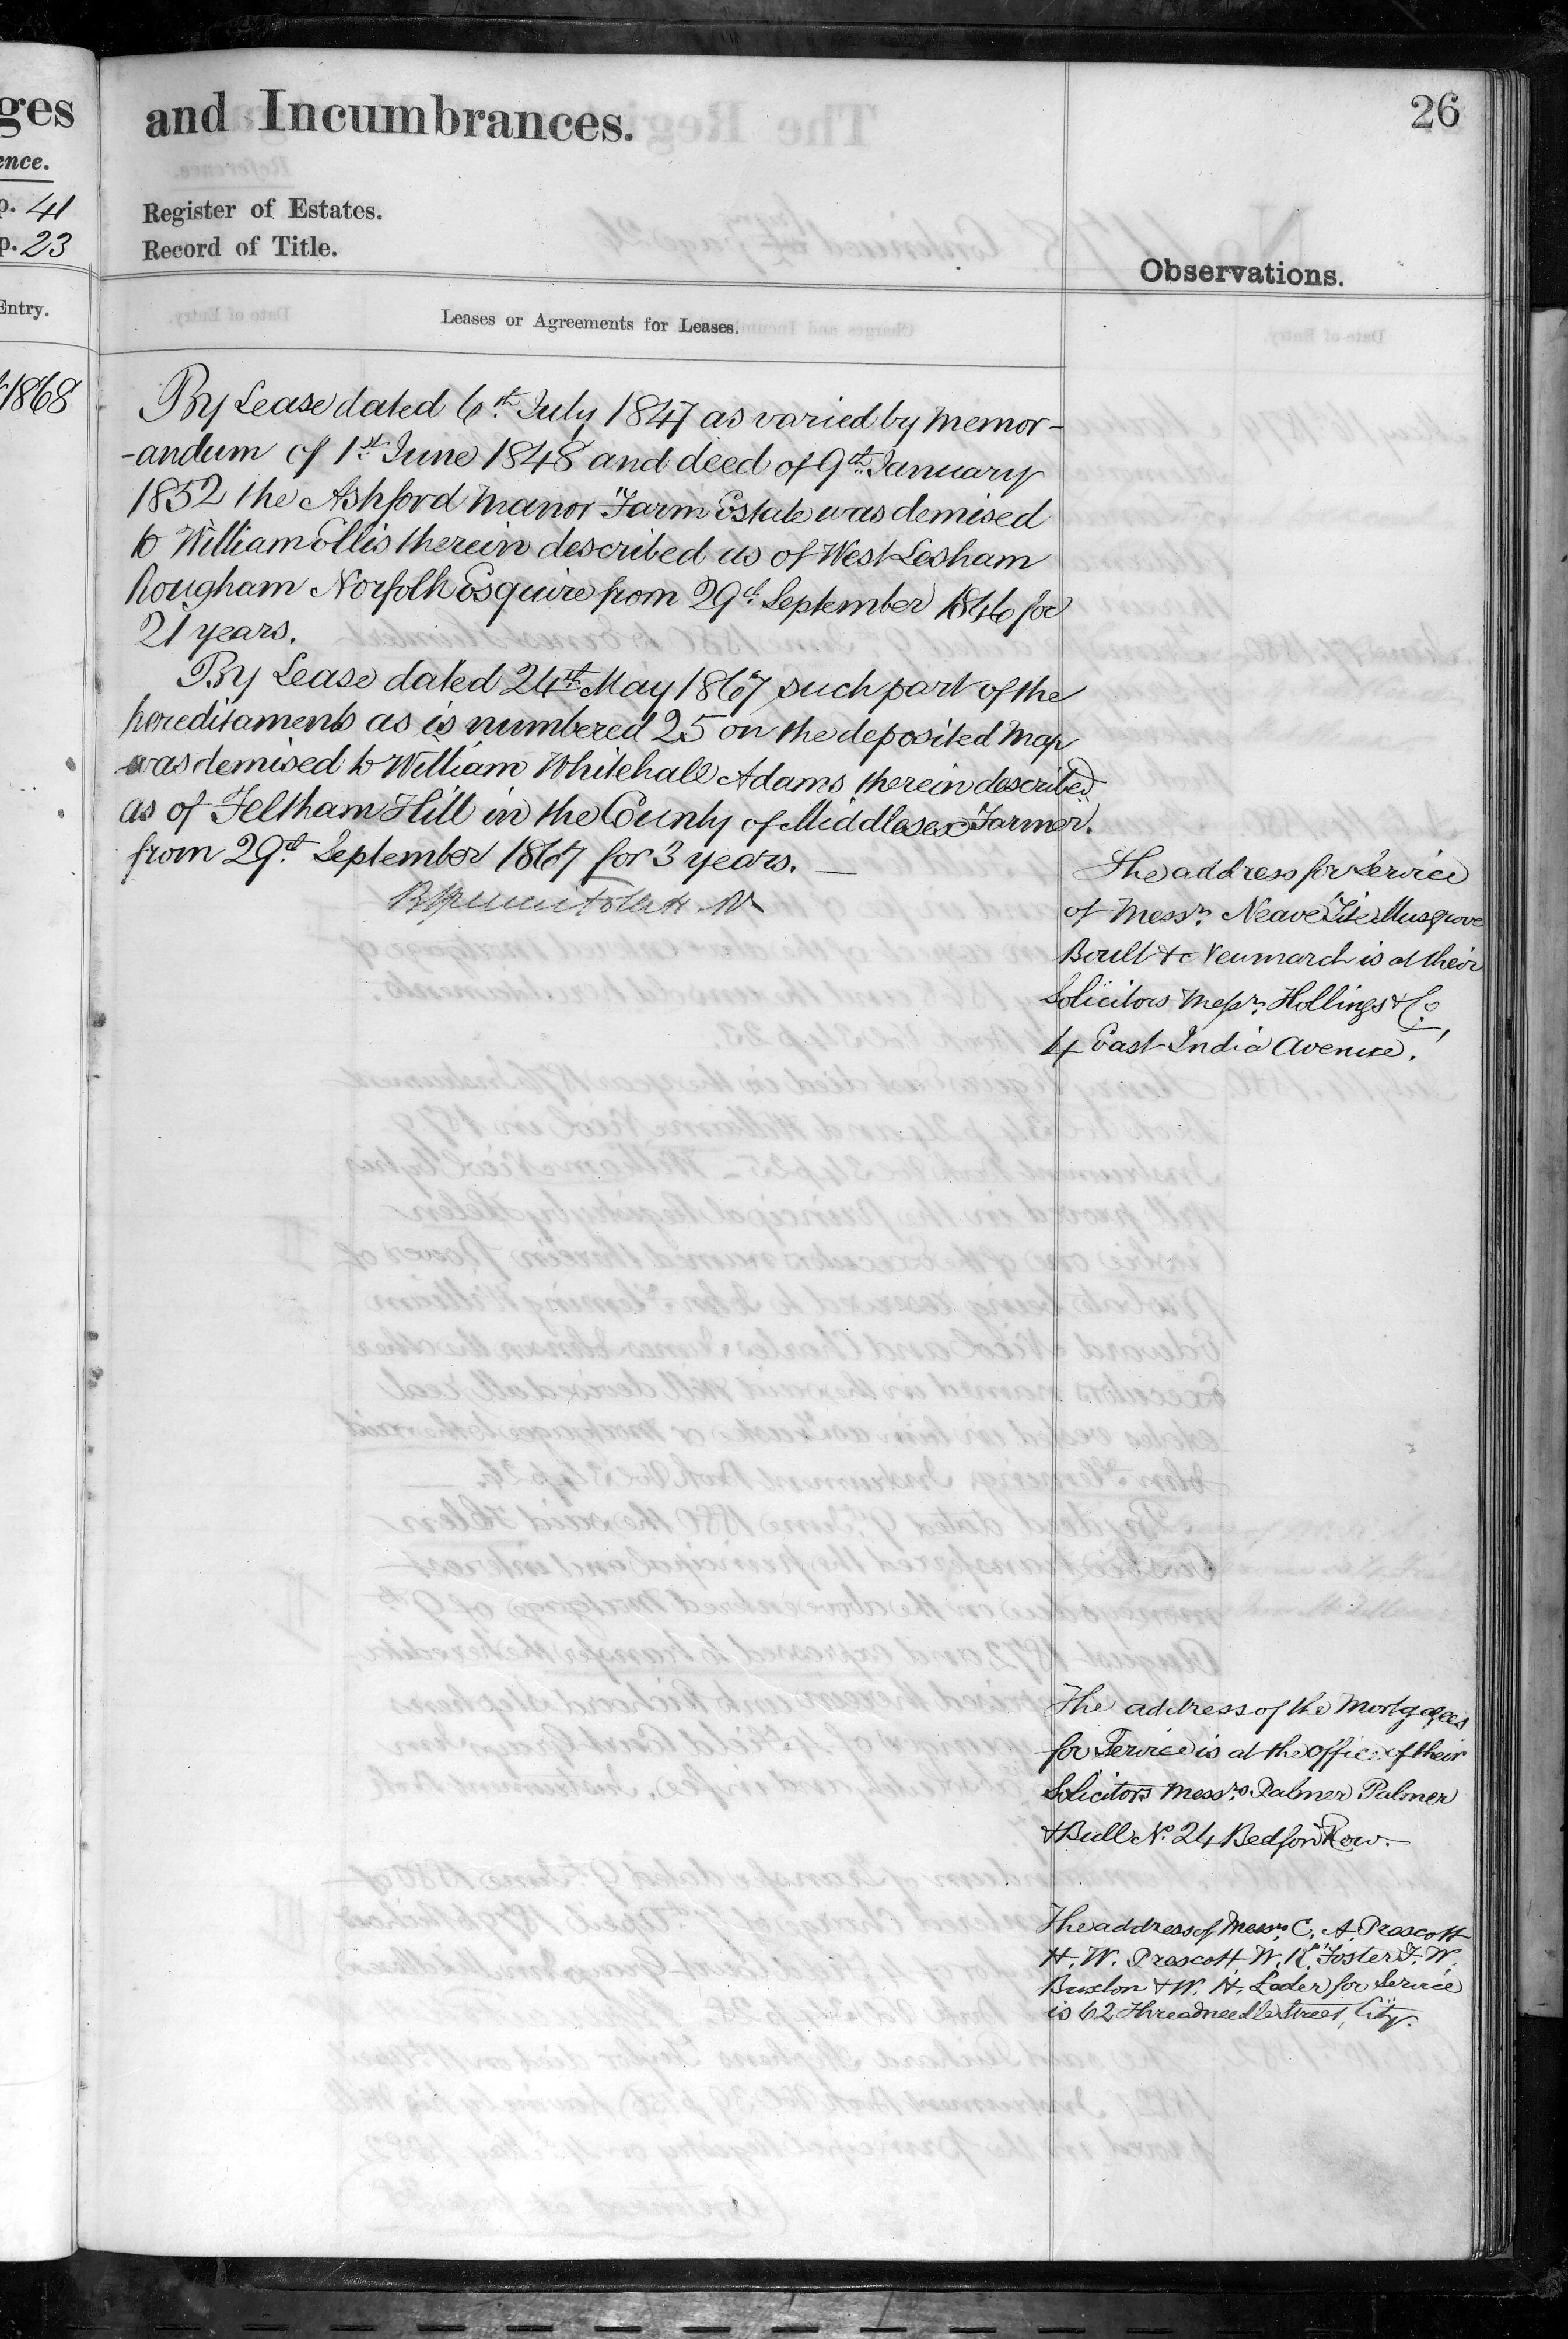 ges
ence.
p. 41
p. 23
Entry.
1868
and Incumbrances.
26
Register of Estates.
Record of Title.
Observations.
Leases or Agreements for Leases.
By Lease dated 6th July 1847 as varied by Memor-
-andum of 1st June 1848 and deed of 9th January
1852 the Ashford Manor Farm Estate was demised
to William Ellis therein described as of West Lesham
Rougham Norfolk Esquire from 29th September 1846 for
21 years.
By Lease dated 24th May 1867 such part of the
hereditaments as is numbered 25 on the deposited Map
was demised to William Whitehall Adams therein described
as of Feltham Hill in the County of Middlesex Farmer.
from 29th September 1867 for 3 years.
The address for Service
of Messrs. Neave Tite Musgrove
Boult & Newmarch is at their
Solicitors Messrs. Hollings & Co.,
4 East India Avenue.
The address of the Mortgagees
for Service is at the office of their
Solicitors Messrs. Palmer Palmer
& Bull No. 24 Bedford Row.
The address of Messrs. C. A. Prescott
H. W. Prescott W. R. Foster F. W.
Buxton & W. H. Loder for Service
is 62 Threadneedle Street, City.